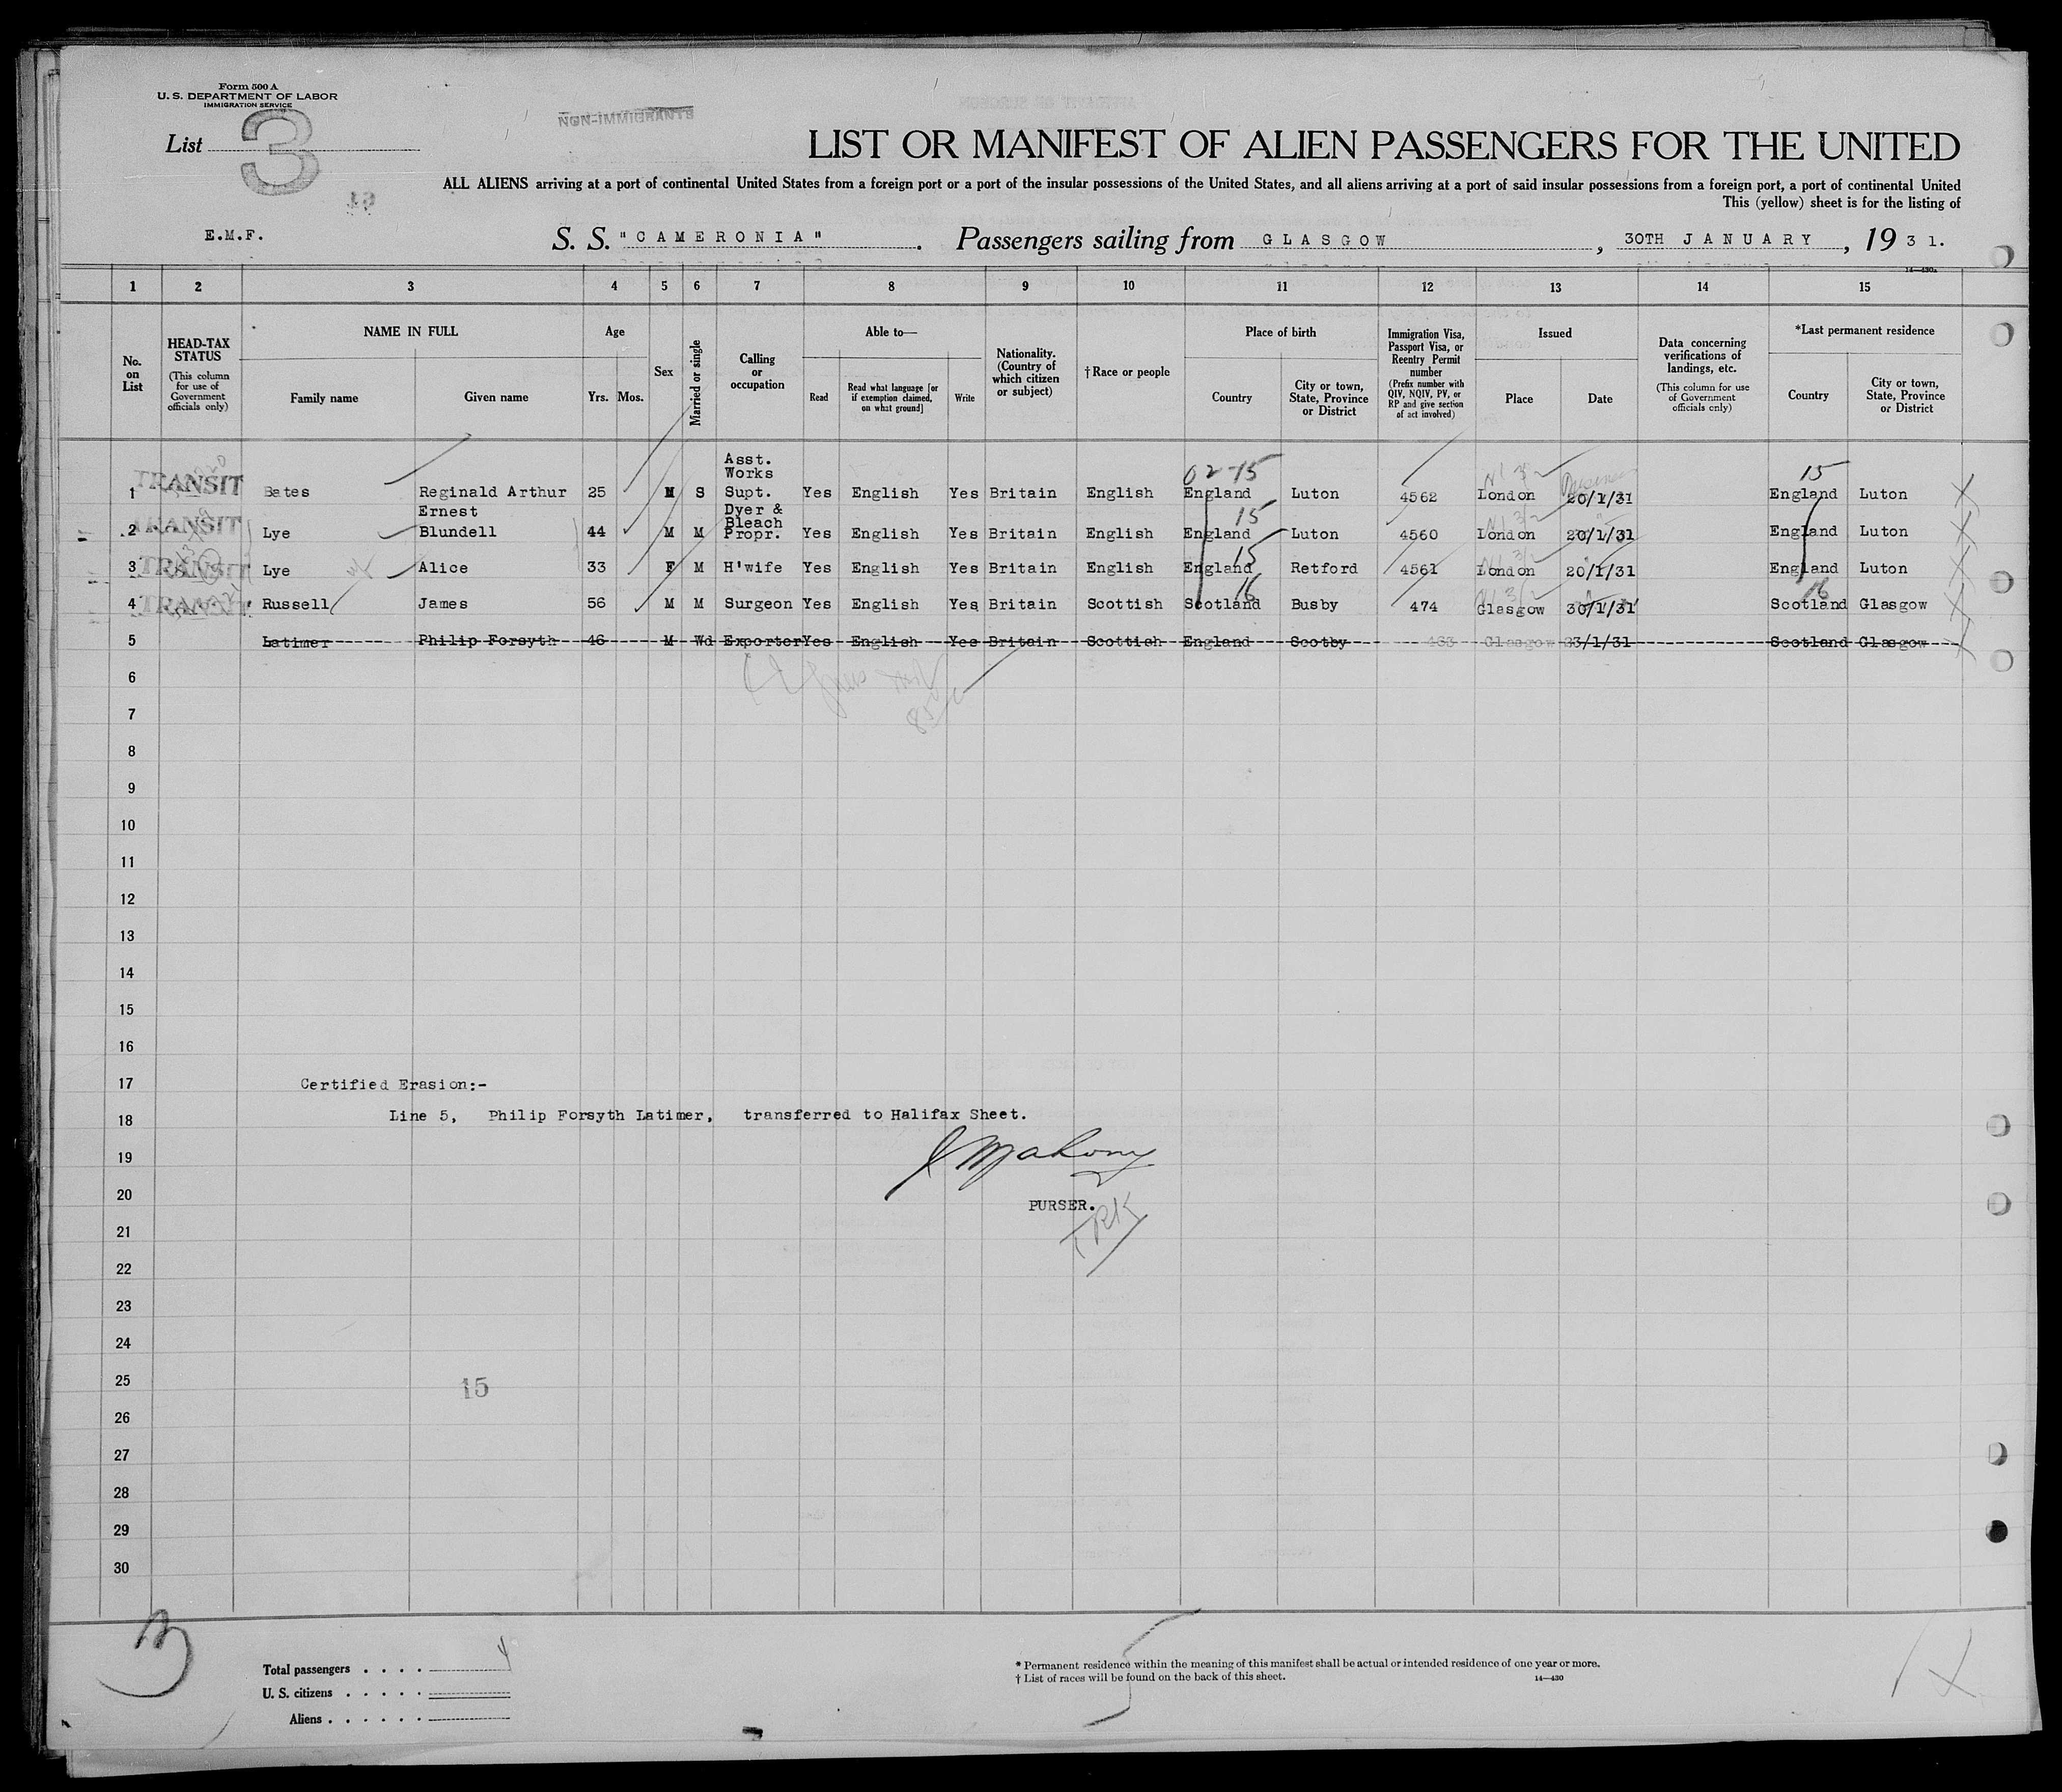 Form 500 A
U. S. DEPARTMENT OF LABOR
IMMIGRATION SERVICE
List 3
NON-IMMIGRANTS
LIST OR MANIFEST OF ALIEN PASSENGERS FOR THE UNITED
ALL ALIENS arriving at a port of continental United States from a foreign port or a port of the insular possessions of the United States, and all aliens arriving at a port of said insular possessions from a foreign port, a port of continental United
This (yellow) sheet is for the listing of
E.M.F.
S. S. "CAMERONIA". Passengers sailing from GLASGOW, 30TH JANUARY, 1931.
14—430a
1 2 3 4 5 6 7 8 9 10 11 12 13 14 15
No. on List
HEAD-TAX STATUS (This column for use of Government officials only)
NAME IN FULL
Family name Given name
Age
Yrs. Mos.
Sex
Married or single
Calling or occupation
Able to—
Read Read what language [or if exemption claimed, on what ground] Write
Nationality. (Country of which citizen or subject)
†Race or people
Place of birth
Country City or town, State, Province or District
Immigration Visa, Passport Visa, or Reentry Permit number (Prefix number with QIV, NQIV, PV, or RP and give section of act involved)
Issued
Place Date
Data concerning verifications of landings, etc. (This column for use of Government officials only)
*Last permanent residence
Country City or town, State, Province or District
02-15 15
1 TRANSIT Bates Reginald Arthur 25 M S Asst. Works Supt. Yes English Yes Britain English England Luton 4562 London 20/1/31 England Luton
15
2 TRANSIT Lye Ernest Blundell 44 M M Dyer & Bleach Propr. Yes English Yes Britain English England Luton 4560 London 20/1/31 England Luton
15
3 TRANSIT Lye Alice 33 F M H'wife Yes English Yes Britain English England Retford 4561 London 20/1/31 England Luton
16 16
4 TRANSIT Russell James 56 M M Surgeon Yes English Yes Britain Scottish Scotland Busby 474 Glasgow 30/1/31 Scotland Glasgow
5 Latimer Philip Forsyth 46 M Wd Exporter Yes English Yes Britain Scottish England Scotby 463 Glasgow 23/1/31 Scotland Glasgow
6
7
8
9
10
11
12
13
14
15
16
17 Certified Erasion:-
18 Line 5, Philip Forsyth Latimer, transferred to Halifax Sheet.
19 J Mahony
20 PURSER.
21
22
23
24
25 15
26
27
28
29
30
3
Total passengers . . . . 4
U. S. citizens . . . . .
Aliens . . . . . .
* Permanent residence within the meaning of this manifest shall be actual or intended residence of one year or more.
† List of races will be found on the back of this sheet. 14—430